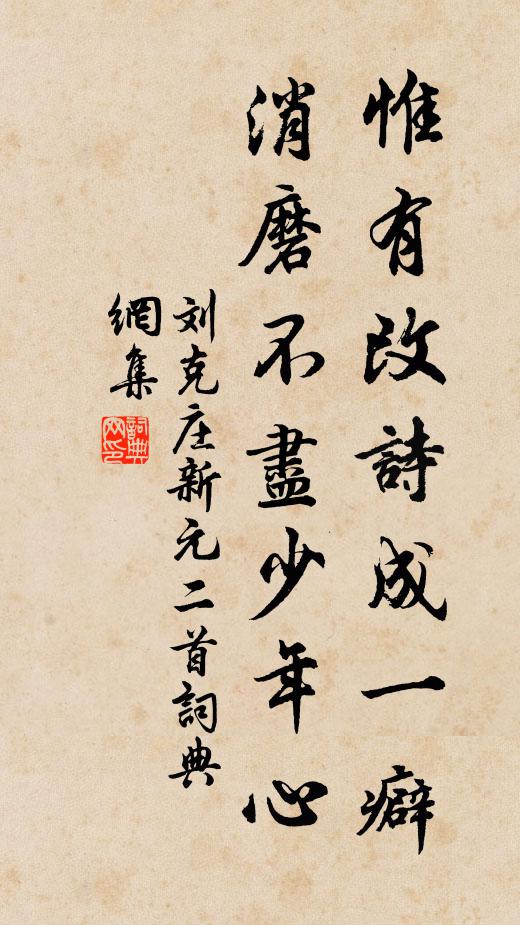 惟有改詩成一癖
消磨不盡少年心
刘克庄新元二首詞典
網集
詞典網印